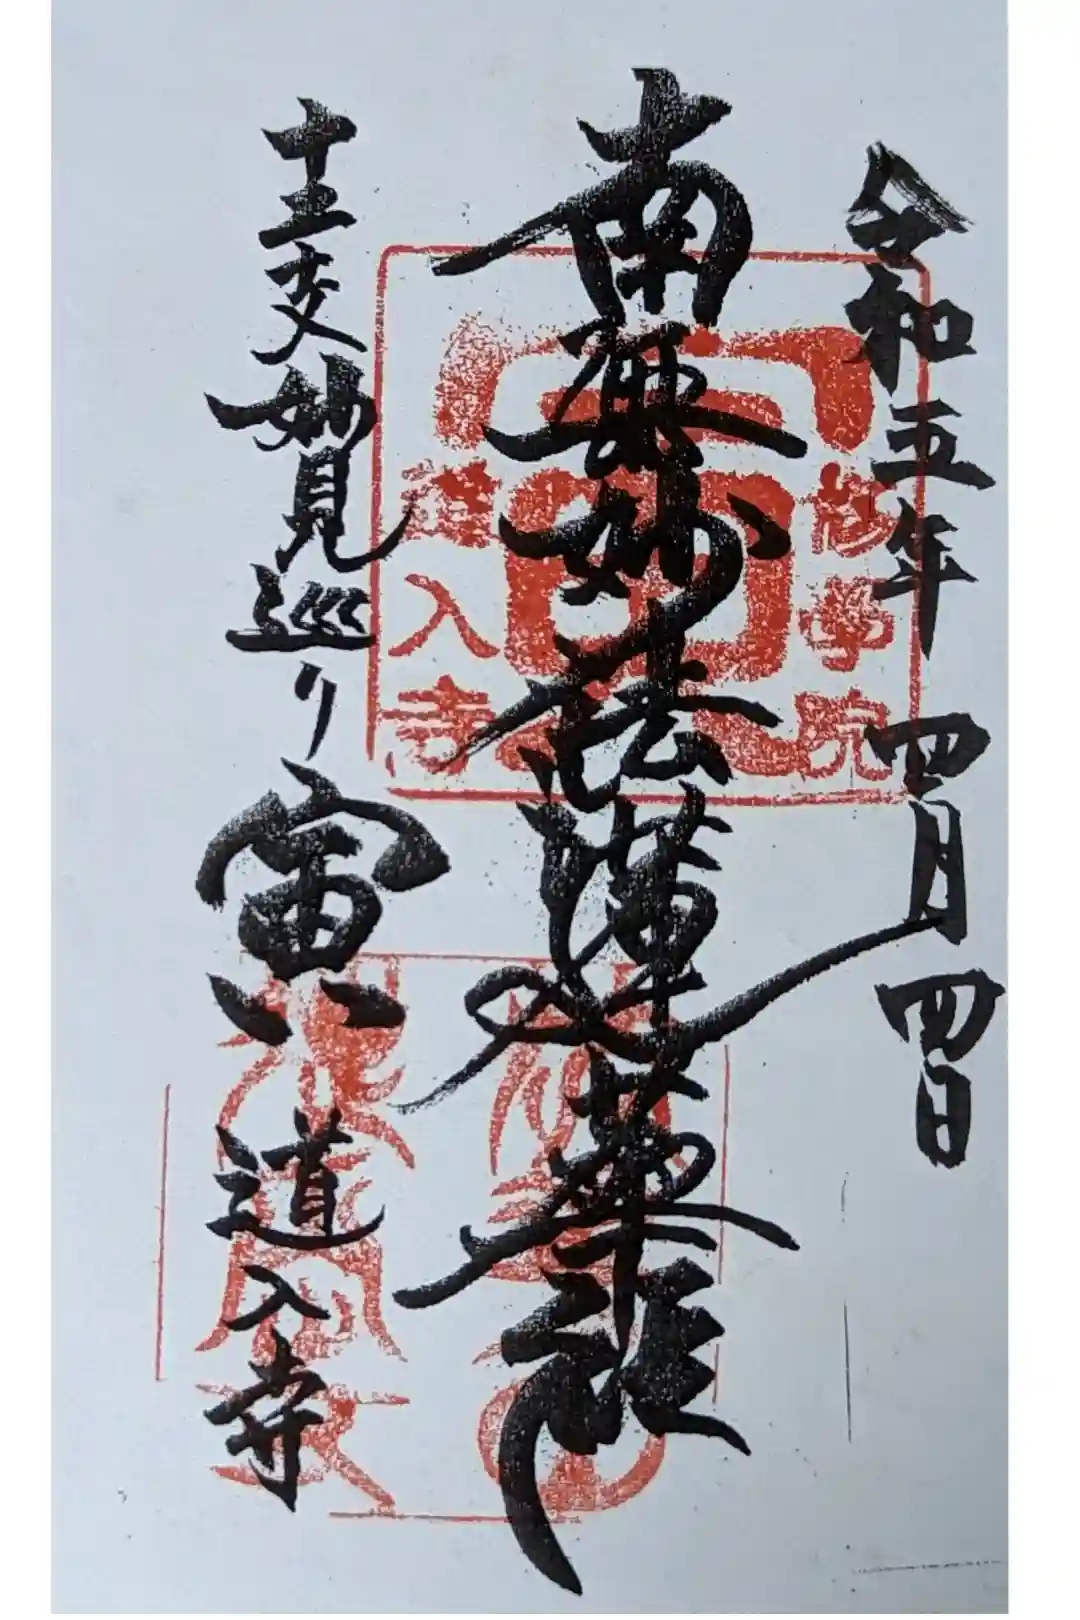 令和五年 四月四日
南無妙法蓮華経
修學院
道入寺
十二支妙見巡り 寅 道入寺